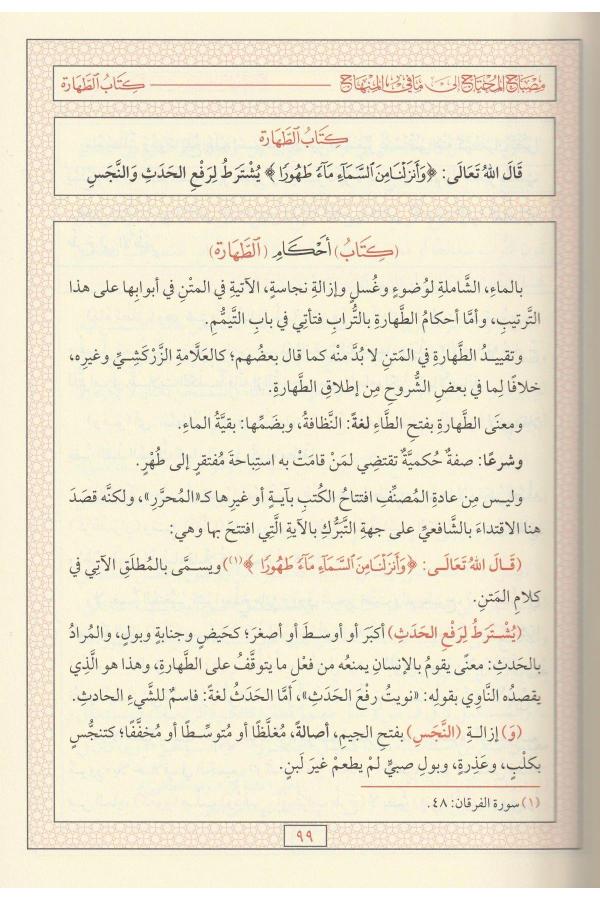 مصباح المحتاج إلى ما في المنهاج
كتاب الطهارة
كِتَابُ الطَّهَارَةِ
قَالَ اللهُ تَعَالَى: ﴿وَأَنزَلْنَا مِنَ ٱلسَّمَآءِ مَآءً طَهُورًا﴾ يُشْتَرَطُ لِرَفْعِ الحَدَثِ وَالنَّجَسِ
(كِتَابُ) أَحْكَامِ (الطَّهَارَةِ)
بالماءِ، الشَّاملةِ لوُضوءٍ وغُسلٍ وإزالةِ نجاسةٍ، الآتيةِ في المتْنِ في أبوابِها على هذا
التَّرتيبِ، وأمَّا أحكامُ الطَّهارةِ بالتُّرابِ فتأتِي في بابِ التيمُّمِ.
وتقييدُ الطَّهارةِ في المَتنِ لا بُدَّ منْه كما قال بعضُهم؛ كالعَلَّامةِ الزَّرْكَشِيِّ وغيرِه،
خلافًا لِما في بعضِ الشُّروحِ مِن إطلاقِ الطَّهارةِ.
ومعنَى الطَّهارةِ بفتحِ الطَّاءِ لغةً: النَّظافةُ، وبضَمِّها: بقيَّةُ الماءِ.
وشرعًا: صفةٌ حُكميَّةٌ تقتضِي لمَنْ قامَتْ به استِباحةَ مُفتقرٍ إلى طُهْرٍ.
وليس مِن عادةِ المُصنِّفِ افتتاحُ الكُتبِ بآيةٍ أو غيرِها كـ«المُحرَّرِ»، ولكنَّه قصَدَ
هنا الاقتداءَ بالشَّافعيِّ على جهةِ التَّبرُّكِ بالآيةِ الَّتِي افتتحَ بها وهي:
(قَالَ اللهُ تَعَالَى: ﴿وَأَنزَلْنَا مِنَ ٱلسَّمَآءِ مَآءً طَهُورًا﴾(١)) ويسمَّى بالمُطلَقِ الآتِي في
كلامِ المَتنِ.
(يُشْتَرَطُ لِرَفْعِ الحَدَثِ) أكبَرَ أو أوسطَ أو أصغرَ؛ كحَيضٍ وجنابةٍ وبولٍ، والمُرادُ
بالحَدثِ: معنًى يقومُ بالإنسانِ يمنعُه من فعْلِ ما يتوقَّفُ على الطَّهارةِ، وهذا هو الَّذي
يقصدُه النَّاوي بقولِه: «نويتُ رفعَ الحَدثِ»، أمَّا الحَدثُ لغةً: فاسمٌ للشَّيءِ الحادثِ.
(وَ) إزالةِ (النَّجَسِ) بفتحِ الجيمِ، أصالةً، مُغلَّظًا أو مُتوسِّطًا أو مخفَّفًا؛ كتنجُّسٍ
بكلْبٍ، وعَذِرةٍ، وبولِ صبيٍّ لمْ يطعمْ غيرَ لَبنٍ.
(١) سورة الفرقان: ٤٨.
٩٩